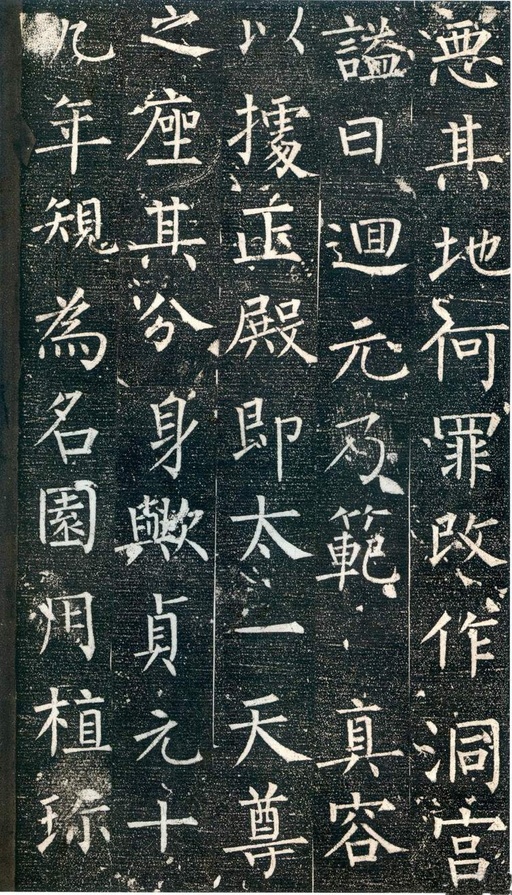 惡其地何罪改作洞宮
謚曰迴元乃範 真容
以據正殿即太一天尊
之座其分身歟貞元十
九年規為名園用植珎